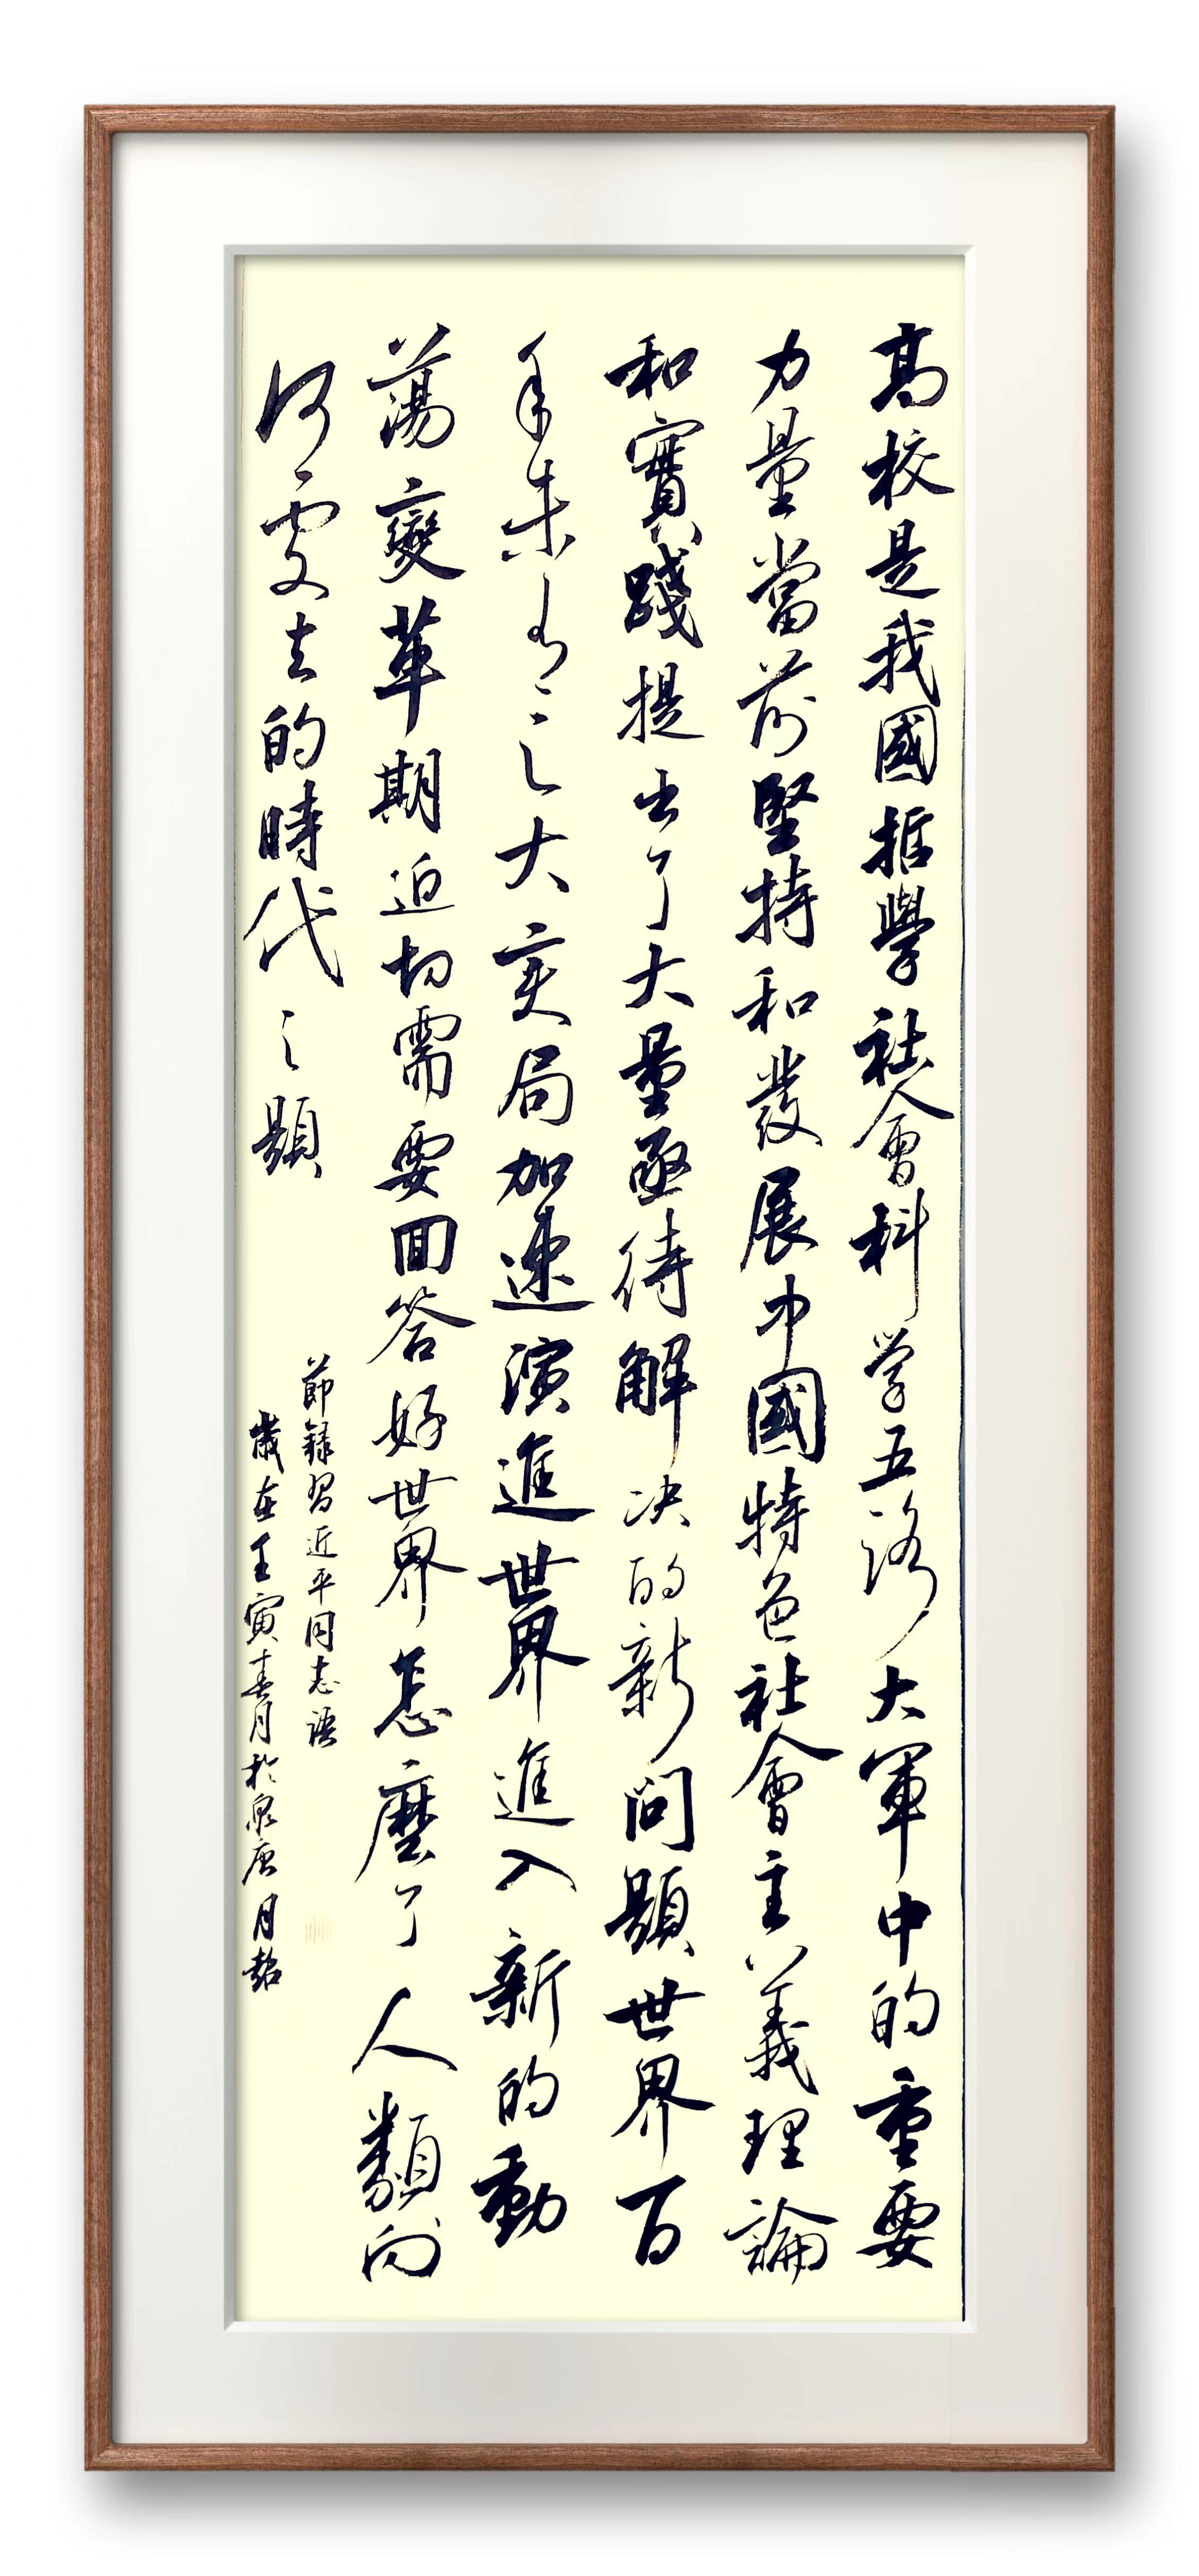 高校是我國哲學社會科学五路大軍中的重要
力量當前堅持和發展中國特色社會主義理論
和實踐提出了大量亟待解决的新问题世界百
年未有之大变局加速演進世界進入新的動
蕩變革期迫切需要回答好世界怎麼了人類向
何處去的時代之题
節録習近平同志語
歲在壬寅春月於泉唐月